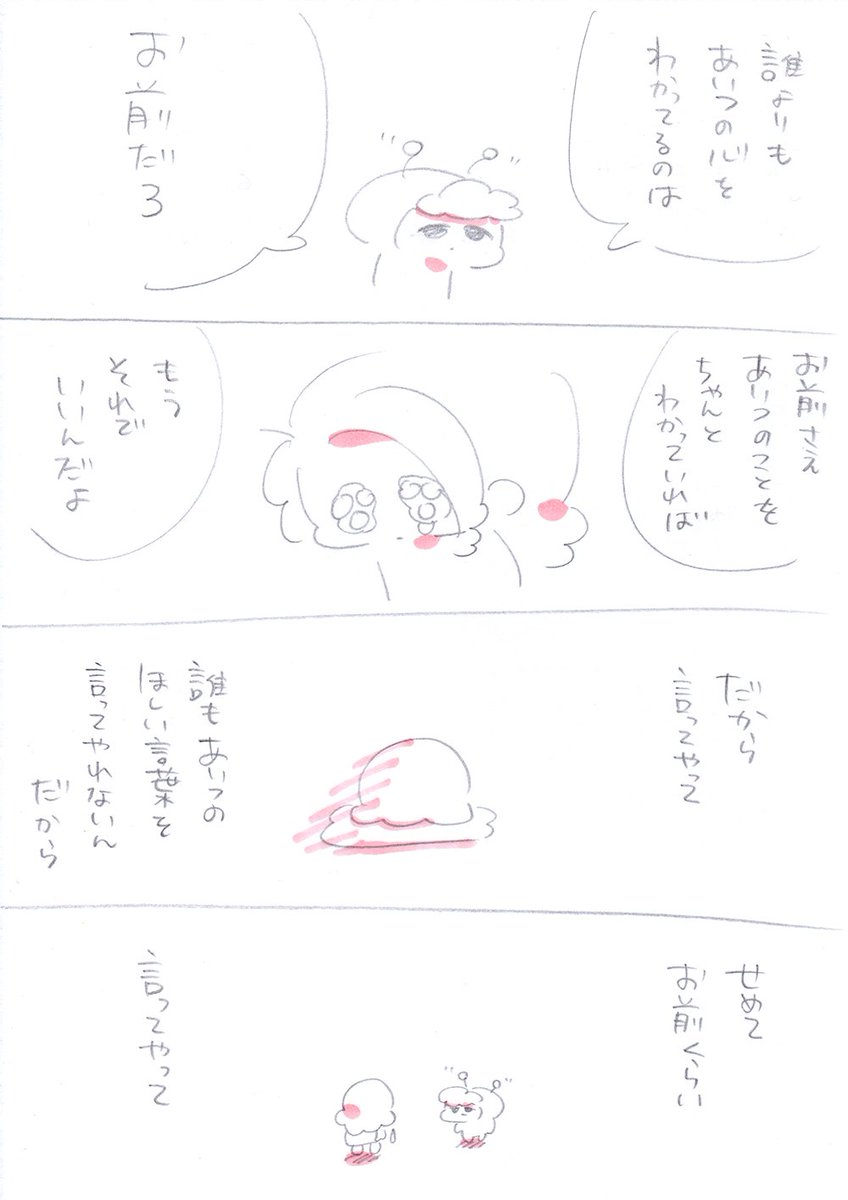 誰よりも
あいつの心を
わかってるのは
お前だろ
お前さえ
あいつのことを
ちゃんと
わかっていれば
もう
それで
いいんだよ
だから
言ってやって
誰もあいつの
ほしい言葉を
言ってやれないん
だから
せめて
お前くらい
言ってやって